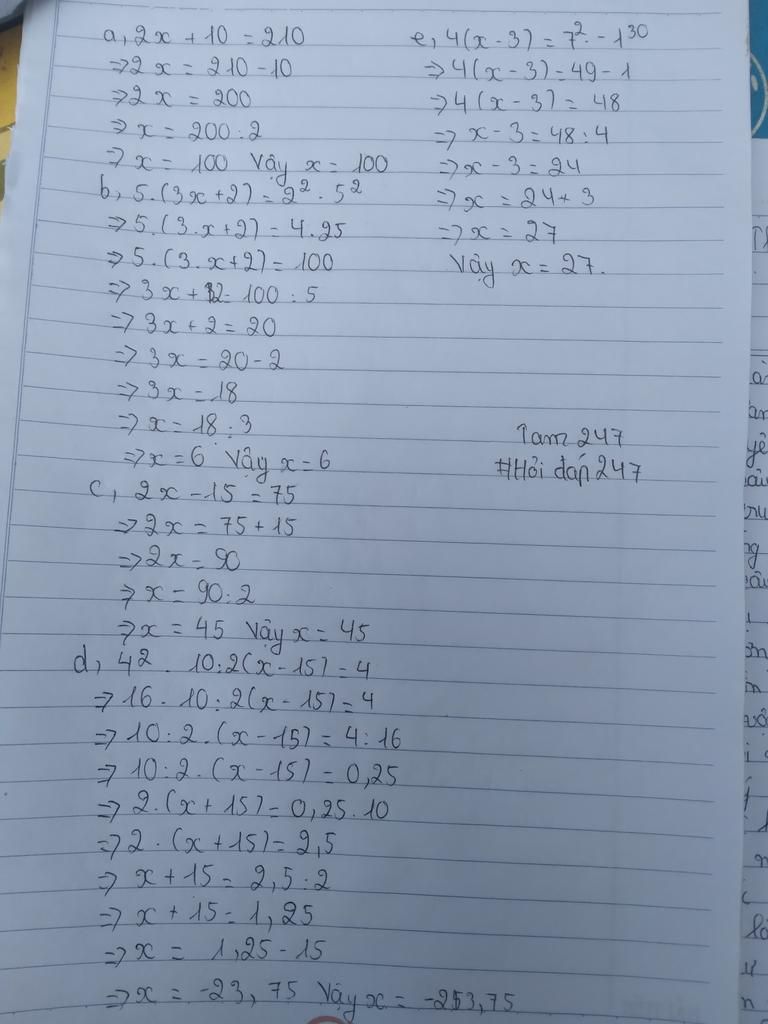 a, 2x + 10 = 210
⇒ 2x = 210 - 10
⇒ 2x = 200
⇒ x = 200 : 2
⇒ x = 100 Vậy x = 100
b, 5.(3x+2) = 2² . 5²
⇒ 5.(3.x+2) = 4.25
⇒ 5.(3.x+2) = 100
⇒ 3x + 2 = 100 : 5
⇒ 3x + 2 = 20
⇒ 3x = 20 - 2
⇒ 3x = 18
⇒ x = 18 : 3
⇒ x = 6 Vậy x = 6
c, 2x - 15 = 75
⇒ 2x = 75 + 15
⇒ 2x = 90
⇒ x = 90 : 2
⇒ x = 45 Vậy x = 45
d, 4² . 10 : 2(x - 15) = 4
⇒ 16 . 10 : 2(x - 15) = 4
⇒ 10 : 2 . (x - 15) = 4 : 16
⇒ 10 : 2 . (x - 15) = 0,25
⇒ 2.(x + 15) = 0,25.10
⇒ 2 . (x + 15) = 2,5
⇒ x + 15 = 2,5 : 2
⇒ x + 15 = 1,25
⇒ x = 1,25 - 15
⇒ x = -23,75 Vậy x = -253,75
e, 4(x - 3) = 7² - 1³⁰
⇒ 4(x - 3) = 49 - 1
⇒ 4(x - 3) = 48
⇒ x - 3 = 48 : 4
⇒ x - 3 = 24
⇒ x = 24 + 3
⇒ x = 27
Vậy x = 27.
Tam 247
#Hỏi đáp 247